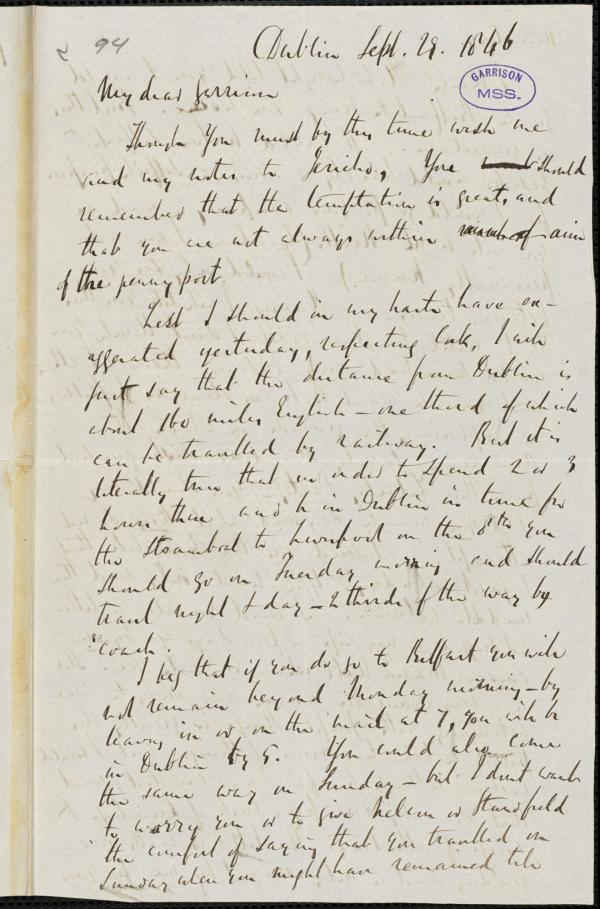 94
Dublin Sept. 29. 1846
GARRISON
MSS.
My dear Garrison
Though you must by this time wish me
and my notes to Jericho, you should
remember that the temptation is great, and
that you are not always within aim
of the penny post.
Lest I should in my haste have ex-
aggerated yesterday, respecting Cork, I will
just say that the distance from Dublin is
about 160 miles English - one third of which
can be travelled by railway. But it is
literally true that in order to spend 2 or 3
hours there and be in Dublin in time for
the Steamboat to Liverpool on the 8th you
should go on Tuesday morning and should
travel night & day - 2 thirds of the way by
coach.
I beg that if you do go to Belfast you will
not remain beyond Monday morning - by
leaving in or on the mail at 7, you will be
in Dublin by 5. You could also come
the same way on Sunday - but I don't want
to worry you or to give Nelson or Standfield
the comfort of saying that you travelled on
Sunday when you might have remained till